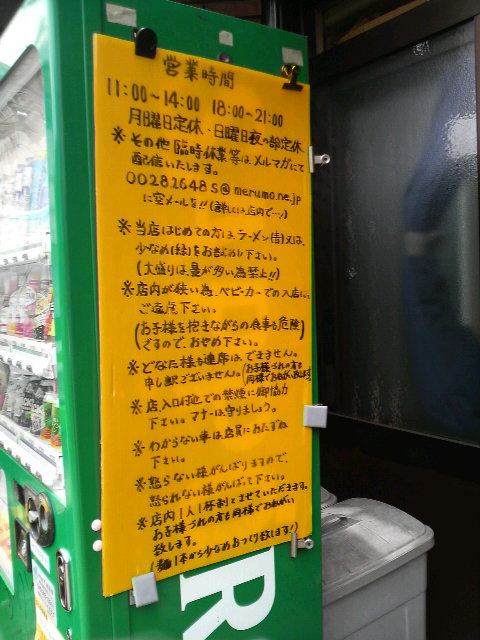 営業時間
11:00〜14:00 18:00〜21:00
月曜日定休・日曜日夜の部定休
※その他臨時休業等は、メルマガにて
配信いたします。
00282648S@merumo.ne.jp
に空メールを!!(詳しくは店内で…)
※当店はじめての方は、ラーメン(青)又は、
少なめ(緑)をお勧め下さい。
(大盛りは、量が多い為禁止!!)
※店内が狭い為、ベビーカーでの入店は
ご遠慮下さい。
(お子様を抱きながらの食事も危険
ですので、おやめ下さい。)
※どなた様も連席は、できません。
申し訳ございません。(お子様づれの方も
同様でお願い致します)
※店入口付近での禁煙に御協力
下さい。マナーは守りましょう。
※わからない事は店員におたずね
下さい。
※怒らない様がんばりますので、
怒られない様がんばって下さい。
※店内1人1杯制とさせていただきます。
お子様づれの方も同様でおねがい
致します。
(麺1本から少なめおつくり致します!)
R